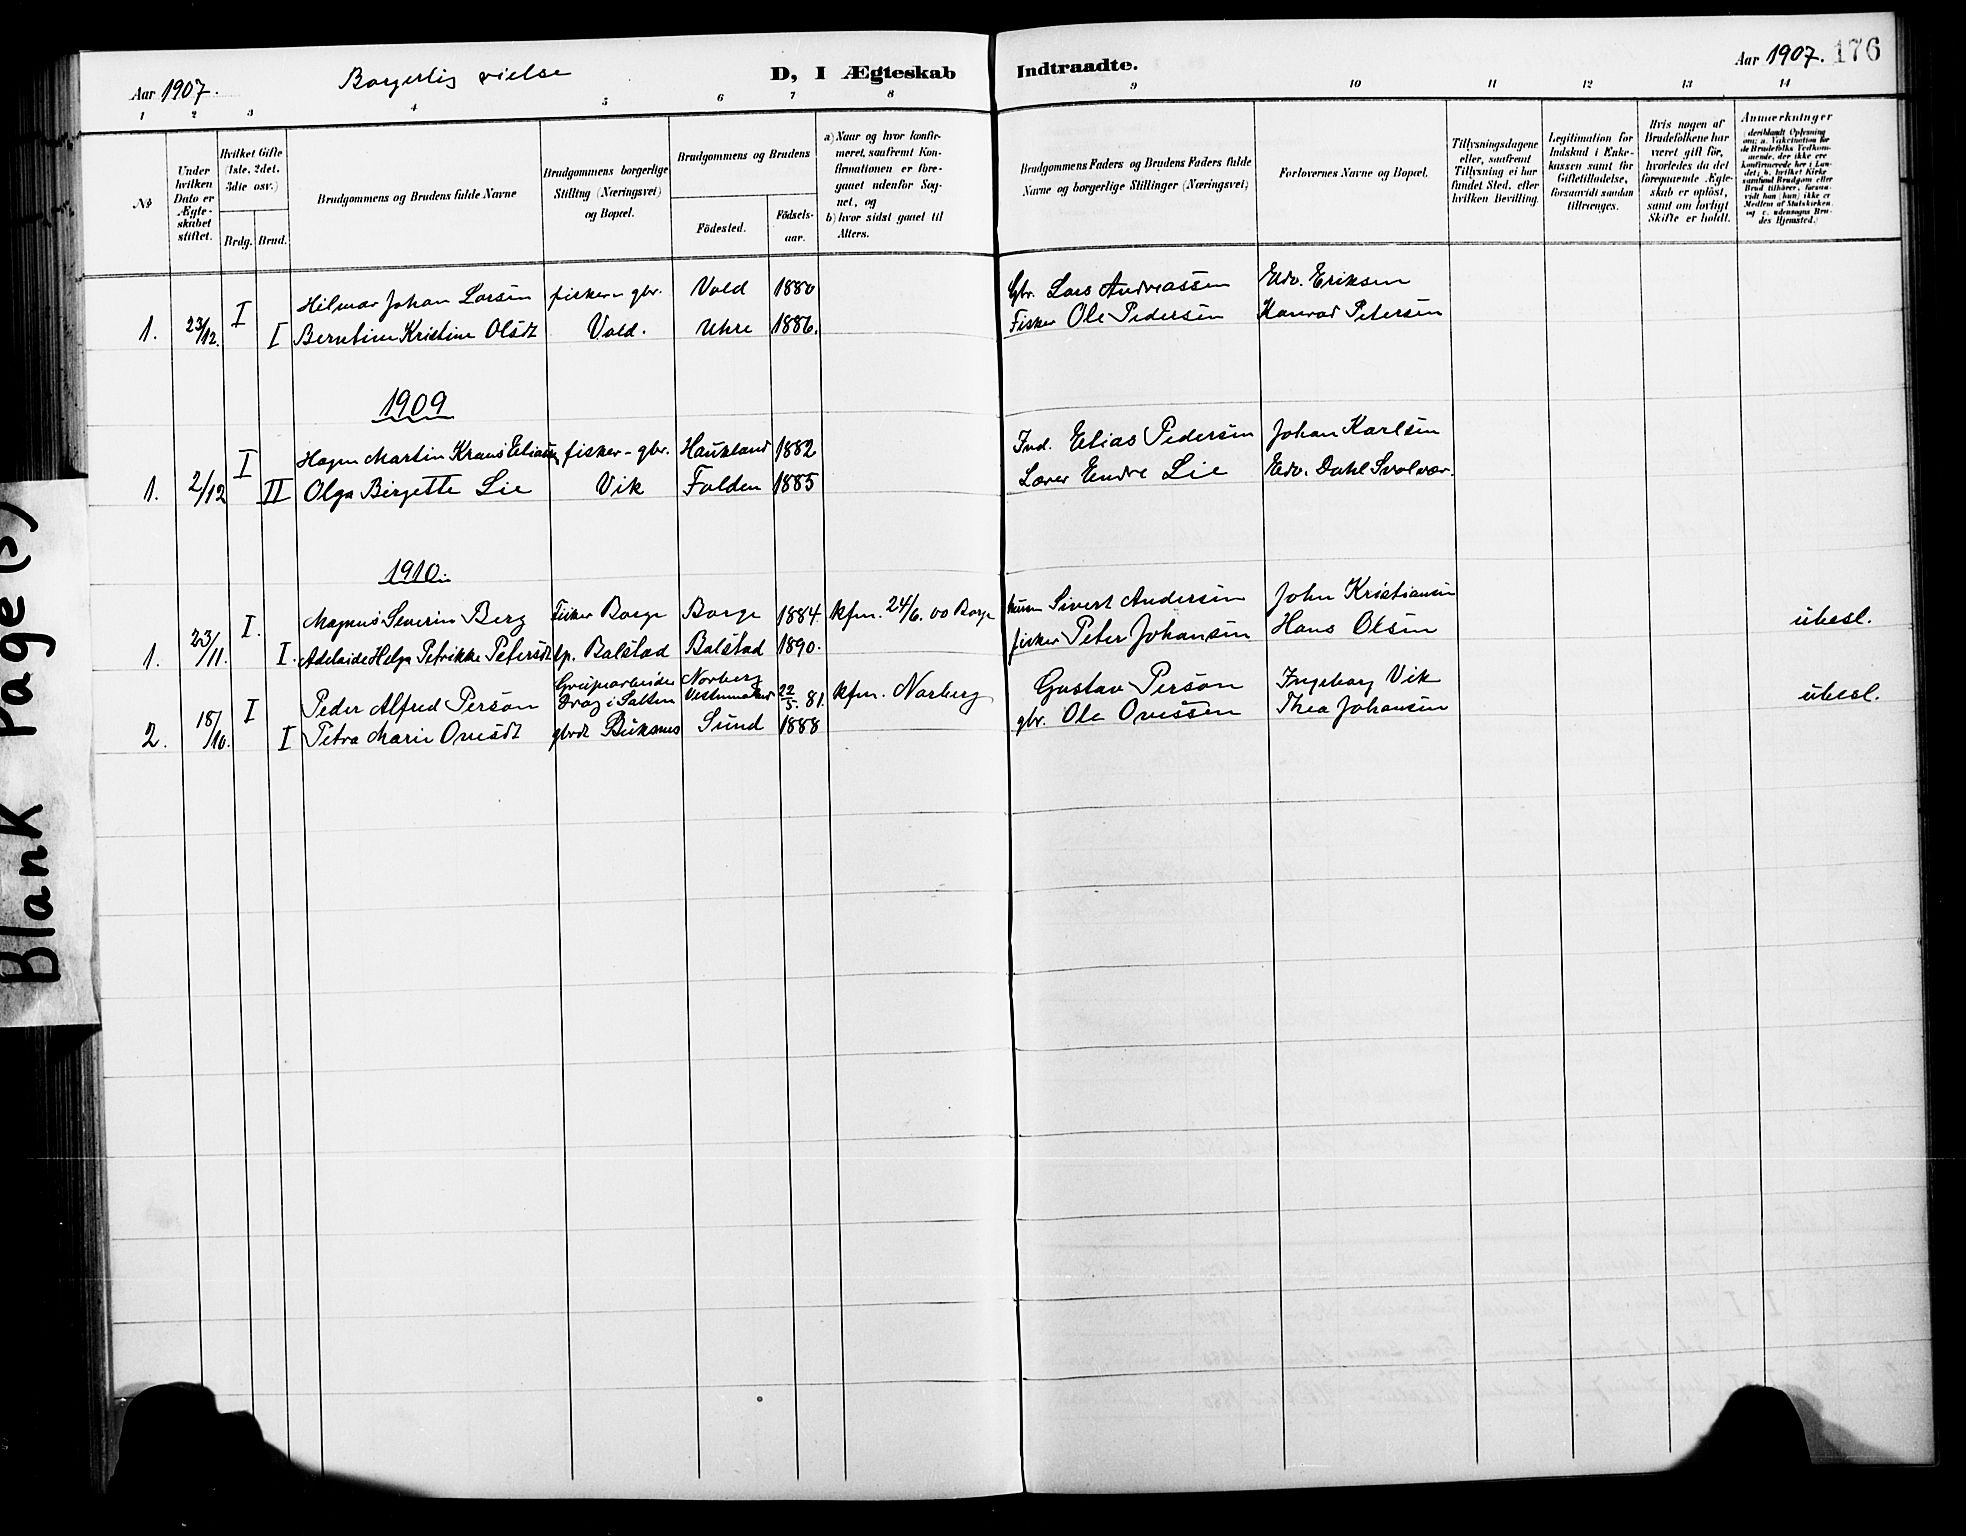 Aar 1907.
Borgerlig vielse
D, I Ægteskab Indtraadte.
Aar 1907. 176
1 2 3 4 5 6 7 8 9 10 11 12 13 14
No
Under hvilken Dato er Ægteskabet stiftet.
Hvilket Gifte (1ste, 2det, 3die osv.)
Brdg. Brud.
Brudgommens og Brudens fulde Navne
Brudgommens borgerlige Stilling (Næringsvei) og Bopæl.
Brudgommens og Brudens
Födested.
Födselsaar.
a) Naar og hvor konfirmeret, saafremt Konfirmationen er foregaaet udenfor Sognet, og
b) hvor sidst gaaet til Alters.
Brudgommens Faders og Brudens Faders fulde Navne og borgerlige Stillinger (Næringsvei)
Forlovernes Navne og Bopæl.
Tillysningsdagene eller, saafremt Tillysning ei har fundet Sted, efter hvilken Bevilling.
Legitimation for Indskud i Enkekassen samt for Giftetilladelse, forsaavidt saadan tiltrænges.
Hvis nogen af Brudefolkene har været gift før, hvorledes da det foregaaende Ægteskab er oplöst, samt om lovligt Skifte er holdt.
Anmærkninger
(deriblandt Oplysning om: a. Vakcination for de Brudefolks Vedkommende, der ikke ere konfirmerede her i Landet; b. hvilket Kirkesamfund Brudgom eller Brud tilhører, forsaavidt han (hun) ikke er Medlem af Statskirken og c. udensogns Brudes Hjemsted.)
I Hilmar Johan Larsen fisker - gbr. Vold 1880 Gbr. Lars Andreassen Edv. Eriksen
1. 23/12. I Berntine Kristine Olsdt Vold. Uhre 1886. Fisker Ole Pedersen Konrad Petersen
1909
I Hagen Martin Kraus Eliassen fisker - gbr. Haukland 1882 Ind. Elias Pedersen Johan Karlsen
1. 2/12 II Olga Birgette Lie Vik Folden 1885 Lærer Endre Lie Edv. Dahl Svolvær.
1910.
I. Magnus Severin Berg Fisker Borge Borge 1884. kfm. 24/6. 00 Borge Sivert Andersen John Kristiansen ubesl.
1. 23/11. I. Adelaide Helga Petrikke Petersdt Balstad Balstad 1890. fisker Peter Johansen Hans Olsen
I Peder Alfred Person Grubearbeider i Salten Norberg Vestmanland 22/5. 81. kfm. Norberg Gustav Person Ingeborg Vik ubesl.
2. 18/10. I Petra Marie Ovesdt gbrdt Buksnes Sund 1888 gbr. Ole Ovessen Thea Johansen
Blank Page(s)